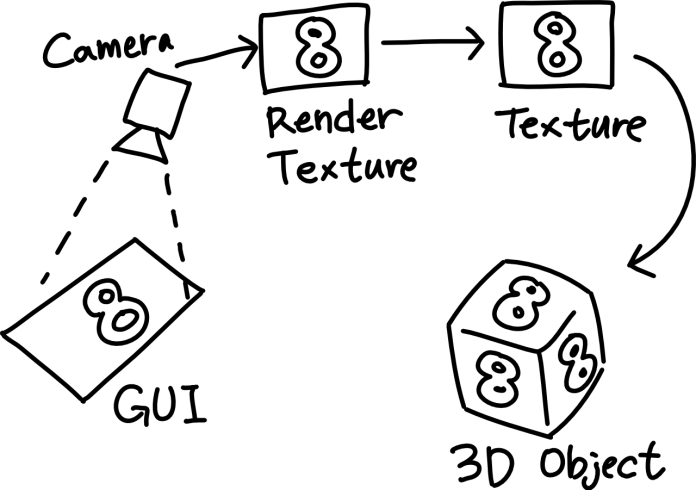 Camera
8
8
Render
Texture
Texture
8
GUI
8
8
8
3D Object